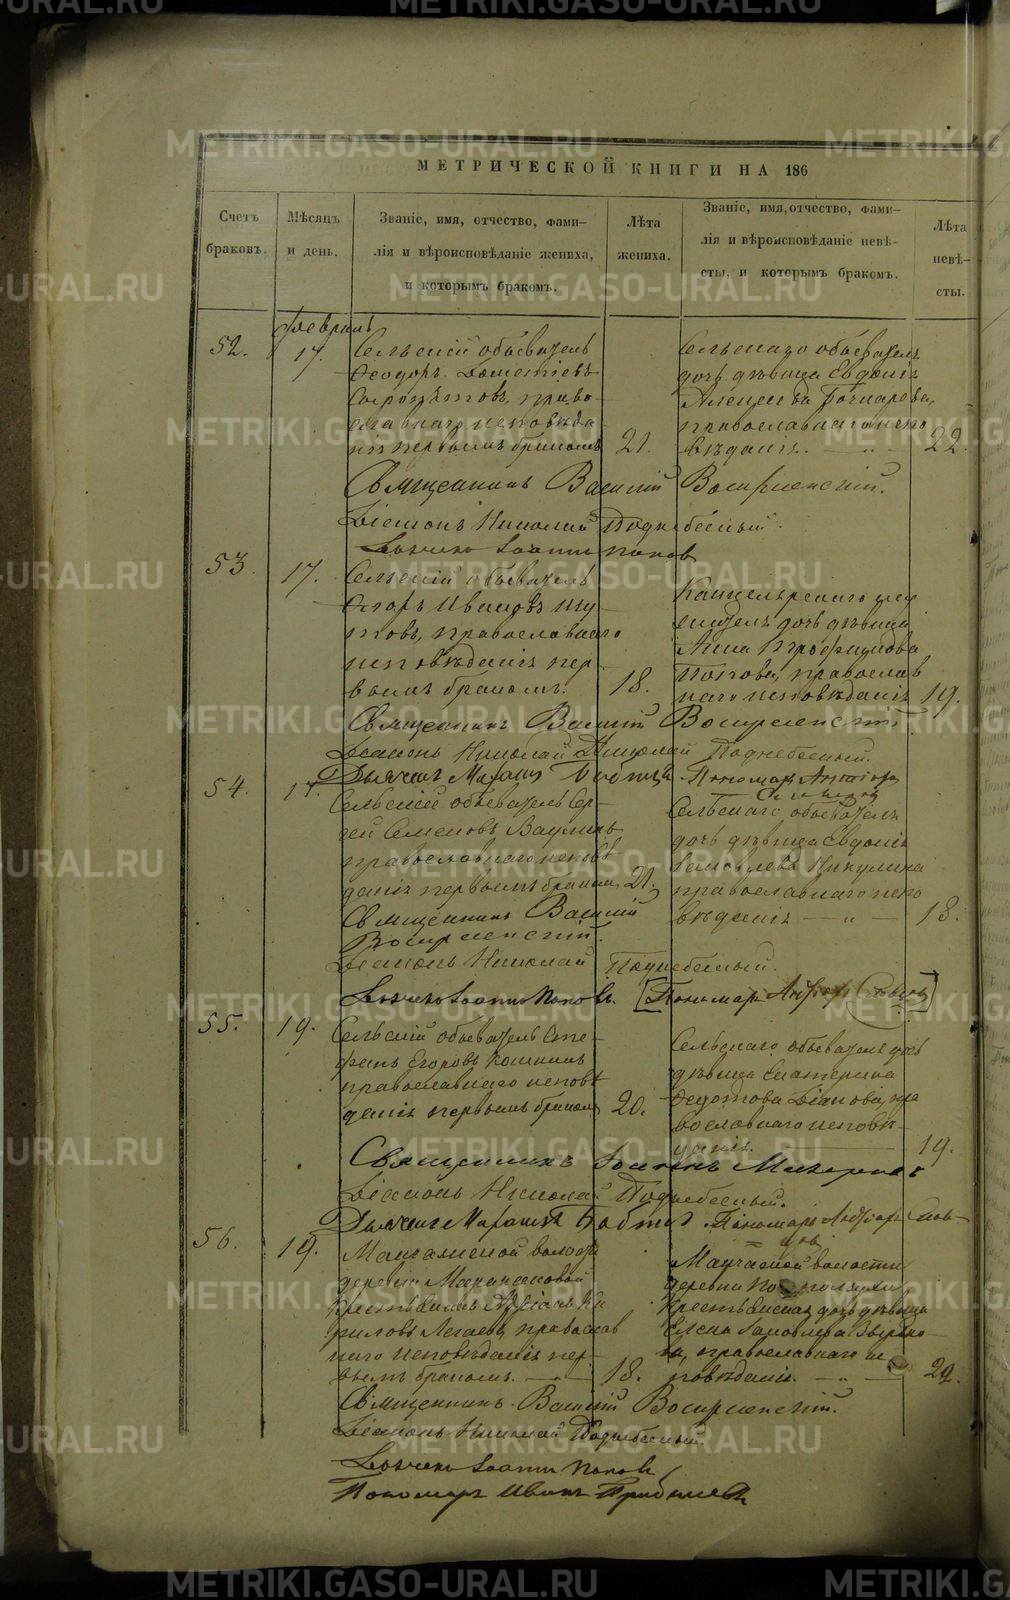 МЕТРИЧЕСКОЙ КНИГИ НА 186
Счетъ браковъ.
Мѣсяцъ и день.
Званіе, имя, отчество, фами-
лія и вѣроисповѣданіе жениха,
и которымъ бракомъ.
Лѣта
жениха.
Званіе, имя, отчество, фами-
лія и вѣроисповѣданіе невѣ-
сты, и которымъ бракомъ.
Лѣта
невѣ-
сты.
Февраль
52.
17.
Сельскій обыватель
Ѳеодоръ Дометіевъ
право-
славнаго исповѣда-
нія первымъ бракомъ
21.
Сельскаго обывателя
дочь дѣвица Евдокія
Алексѣева Бочкарева,
православнаго испо
вѣданія.
22.
Священникъ Василій Воскресенскій.
Діаконъ Николай Поднебесный.
Іоаннъ Поповъ
53.
17.
Сельскій обыватель
Егоръ Ивановъ Шу-
товъ, православнаго
исповѣданія пер-
вымъ бракомъ.
18.
Канцелярскаго слу
жителя дочь дѣвица
Анна
Попова, православ
наго исповѣданія
19.
Священникъ Василій Воскресенскій
Діаконъ Николай Николай Поднебесный.
Дьячекъ Пономарь
54.
17.
Сельскій обыватель Сер-
гей Семеновъ Ваулинъ
православнаго исповѣ
данія первымъ бракомъ
21.
Сельскаго обывателя
дочь дѣвица Евдокія
Яковлева Никулина
православнаго испо
вѣданія
18.
Священникъ Василій
Воскресенскій.
Діаконъ Николай Поднебесный.
Іоаннъ Поповъ. [Пономарь
55.
19.
Сельскій обыватель Сте-
фанъ Егоровъ Кошкинъ
православнаго исповѣ
данія первымъ бракомъ
20.
Сельскаго обывателя дочь
дѣвица Екатерина
Ѳедотова Діанова, пра
вославнаго исповѣ-
данія.
19.
Священникъ Іоаннъ Макаровъ
Діаконъ Николай Поднебесный.
Дьячекъ Пономарь
56.
19.
Манчажской волости
деревни
крестьянинъ Ки
риловъ православ
наго исповѣданія пер-
вымъ бракомъ.
18.
Манчажской волости
деревни
крестьянская дочь дѣвица
Елена Яковлева
православнаго ис
повѣданія.
22.
Священникъ Василій Воскресенскій.
Діаконъ Николай Поднебесный.
Іоаннъ Поповъ
Пономарь Иванъ
METRIKI.GASO-URAL.RU